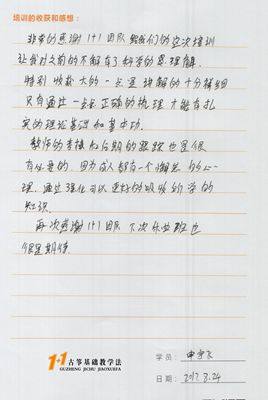 培训的收获和感想：
非常的感谢1+1团队给我们的这次培训
让我对之前的不解有了科学的思理解
特别收获大的一点是讲解的十分详细
只有通过一点点正确的梳理才能有扎
实的理论基础和基本功.
教师的考核和后期的跟踪也是很
有必要的，因为成人都有一个懒惰的心
理，通过强化可以更好的吸收所学的
知识.
再次感谢1+1团队 下次作业班也
很是期待.
1+1古筝基础教学法
GUZHENG JICHU JIAOXUEFA
学员：
日期：2017.8.24